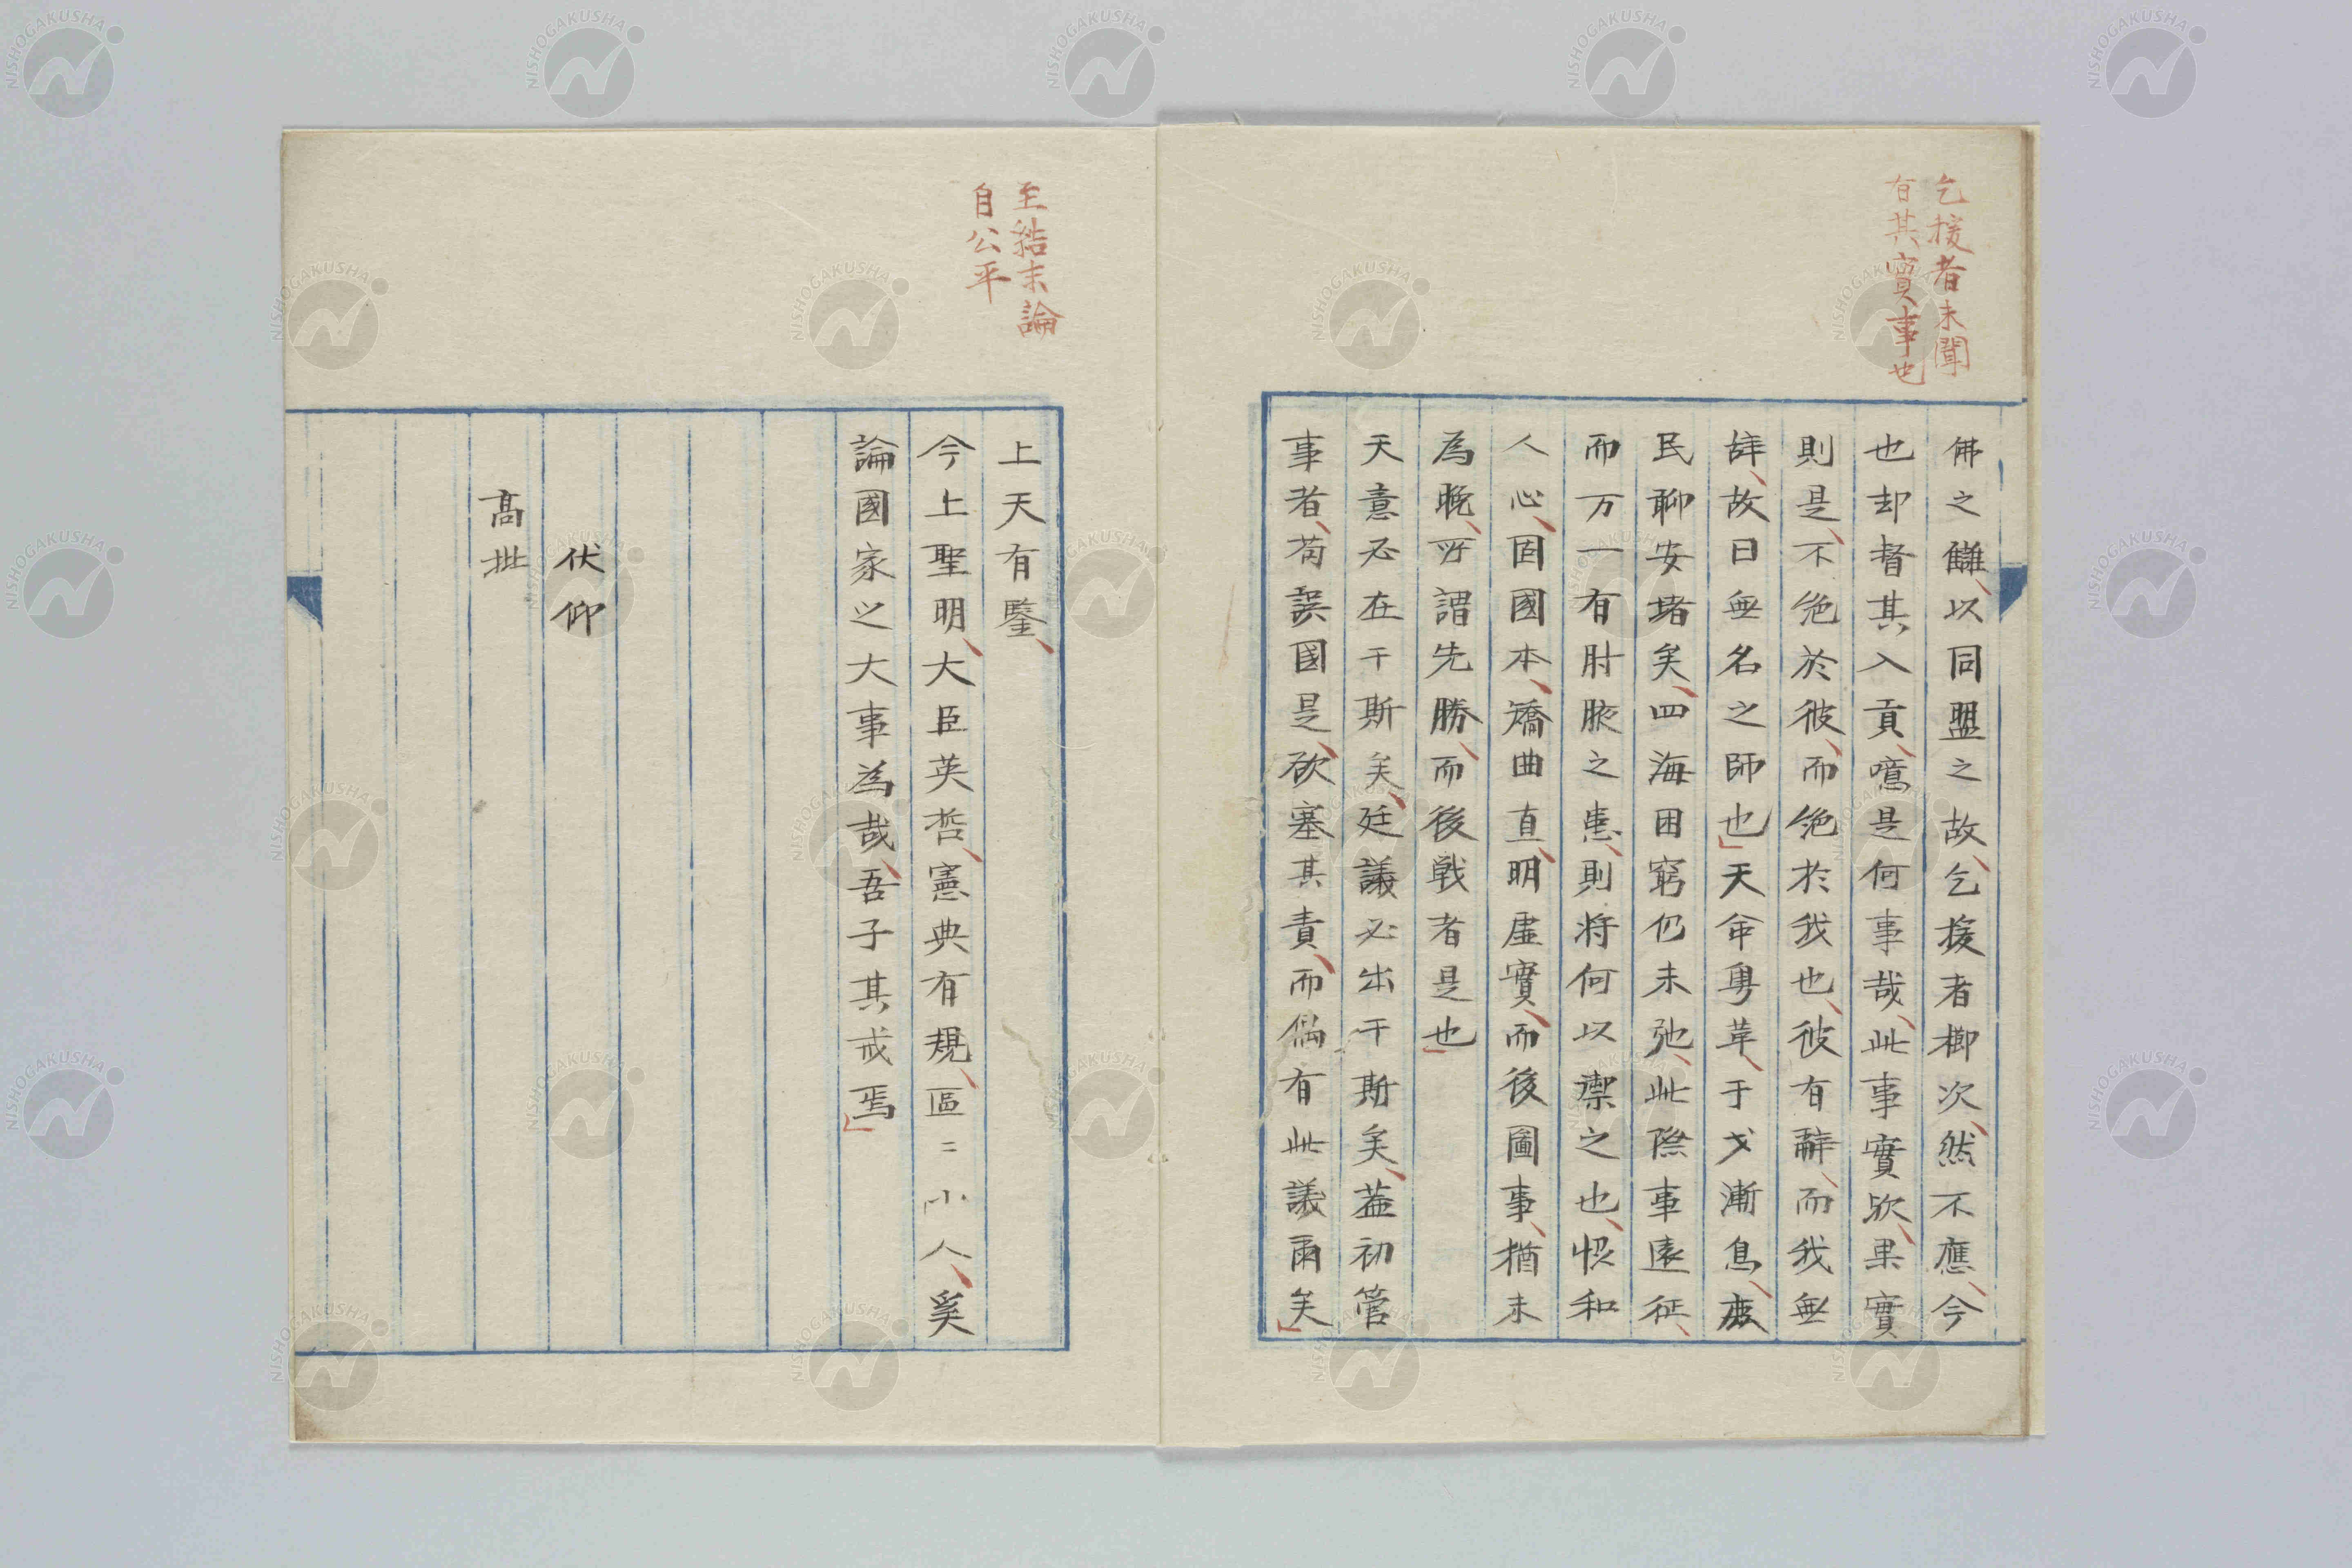 乞援者未聞
有其實事也
佛之讎以同盟之故乞援者榔次然不應今
也却督其入貢噫是何事哉此事實欤果實
則是不絶於彼而絶於我也彼有辭而我無
辞故曰無名之師也天命粤革于戈漸息
民聊安堵矣四海困窮仍未弛此際事遠征
而万一有肘腋之患則將何以禦之也恨和
人心固國本矯曲直明虚實而後圖事猶未
為晚所謂先勝而後戦者是也
天意必在于斯矣廷議必出于斯矣蓋初管
事者苟誤國是欲塞其責而偶有此議爾矣
至結末論
自公平
上天有鑒
今上聖明大臣英哲憲典有規區〻小人奚
論國家之大事為哉吾子其戒焉
伏仰
高批
NISHOGAKUSHA